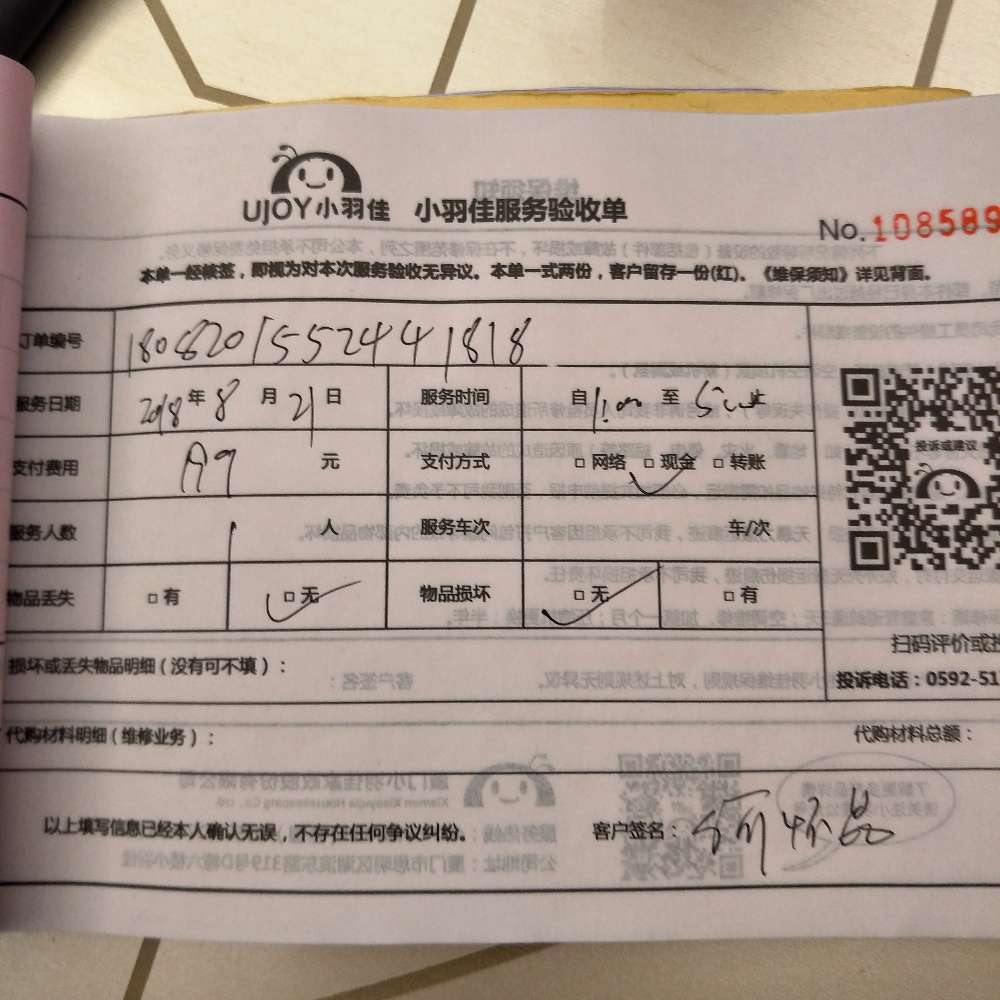 UJOY小羽佳 小羽佳服务验收单
No.108589
本单一经核签，即视为对本次服务验收无异议。本单一式两份，客户留存一份(红)。《维保须知》详见背面。
订单编号 180820155244 1818
服务日期 2018年8月21日 服务时间 自1:00至5:00止
支付费用 元 支付方式 □网络 □现金 □转账
服务人数 1人 服务车次 车/次
物品丢失 □有 □无 物品损坏 □无 □有
投诉或建议
扫码评价或投
投诉电话：0592-51
损坏或丢失物品明细（没有可不填）：
代购材料明细（维修业务）： 代购材料总额：
以上填写信息已经本人确认无误，不存在任何争议纠纷。 客户签名：